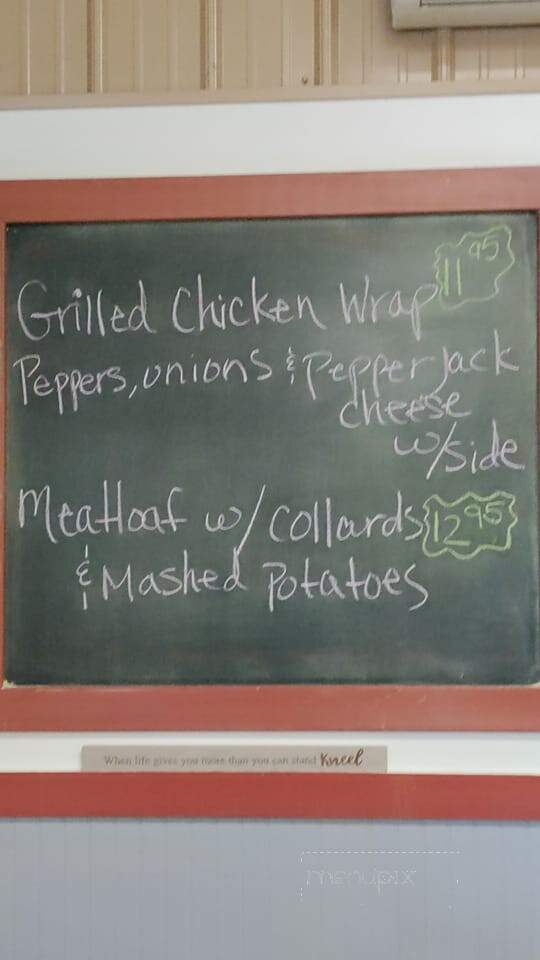 Grilled Chicken Wrap 11 95
Peppers, onions & Pepper Jack
cheese
w/side
Meatloaf w/ collards 12 95
& Mashed Potatoes
When life gives you more than you can stand Kneel
menupix